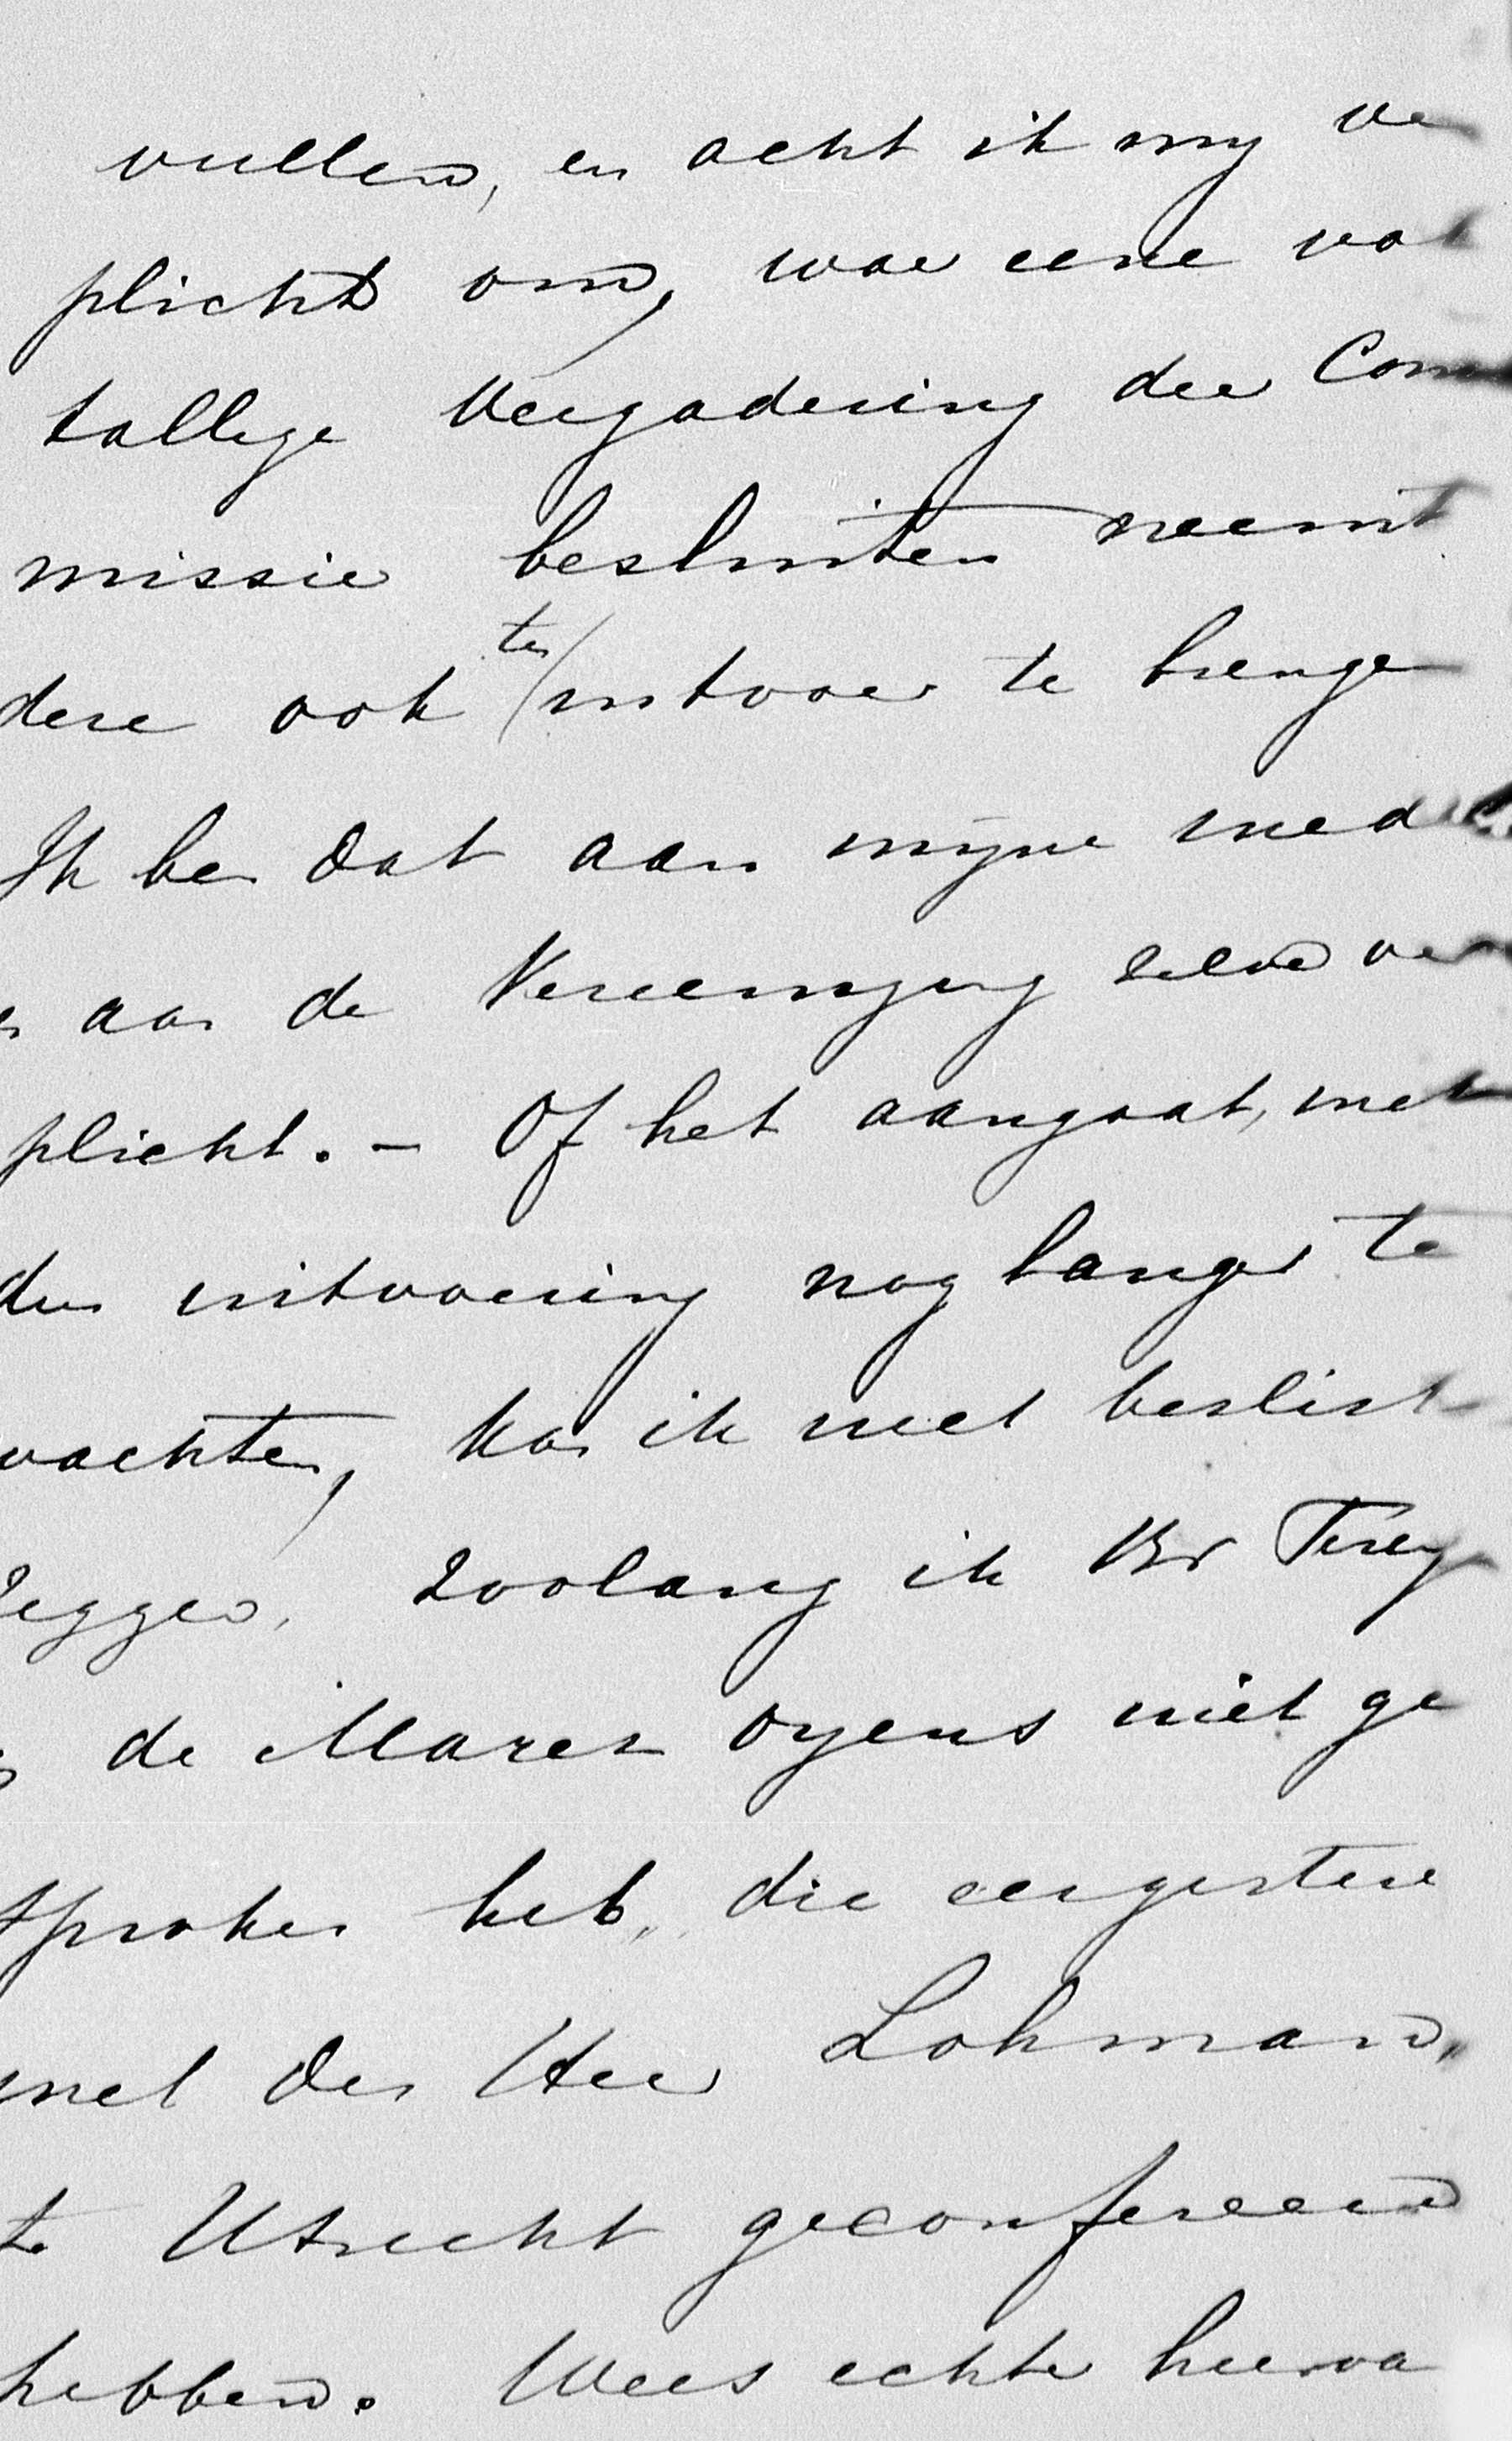 vullen, en acht ik my ver
plicht om, waar eene vol
tallige Vergadering der Com
missie besluiten neemt
dere ook ten uitvoer te brengen
Ik ben dat aan mijne mede
en aan de Vereeniging zelve ver
plicht. - Of het aangaat, met
der uitvoering nog langer te
wachten, kan ik niet beslist
zeggen, zoolang ik Br
de Marez Oyens niet ge
sproken heb, die eergisteren
met den Heer Lohman,
te Utrecht geconfereerd
hebben. Wees echter hierva